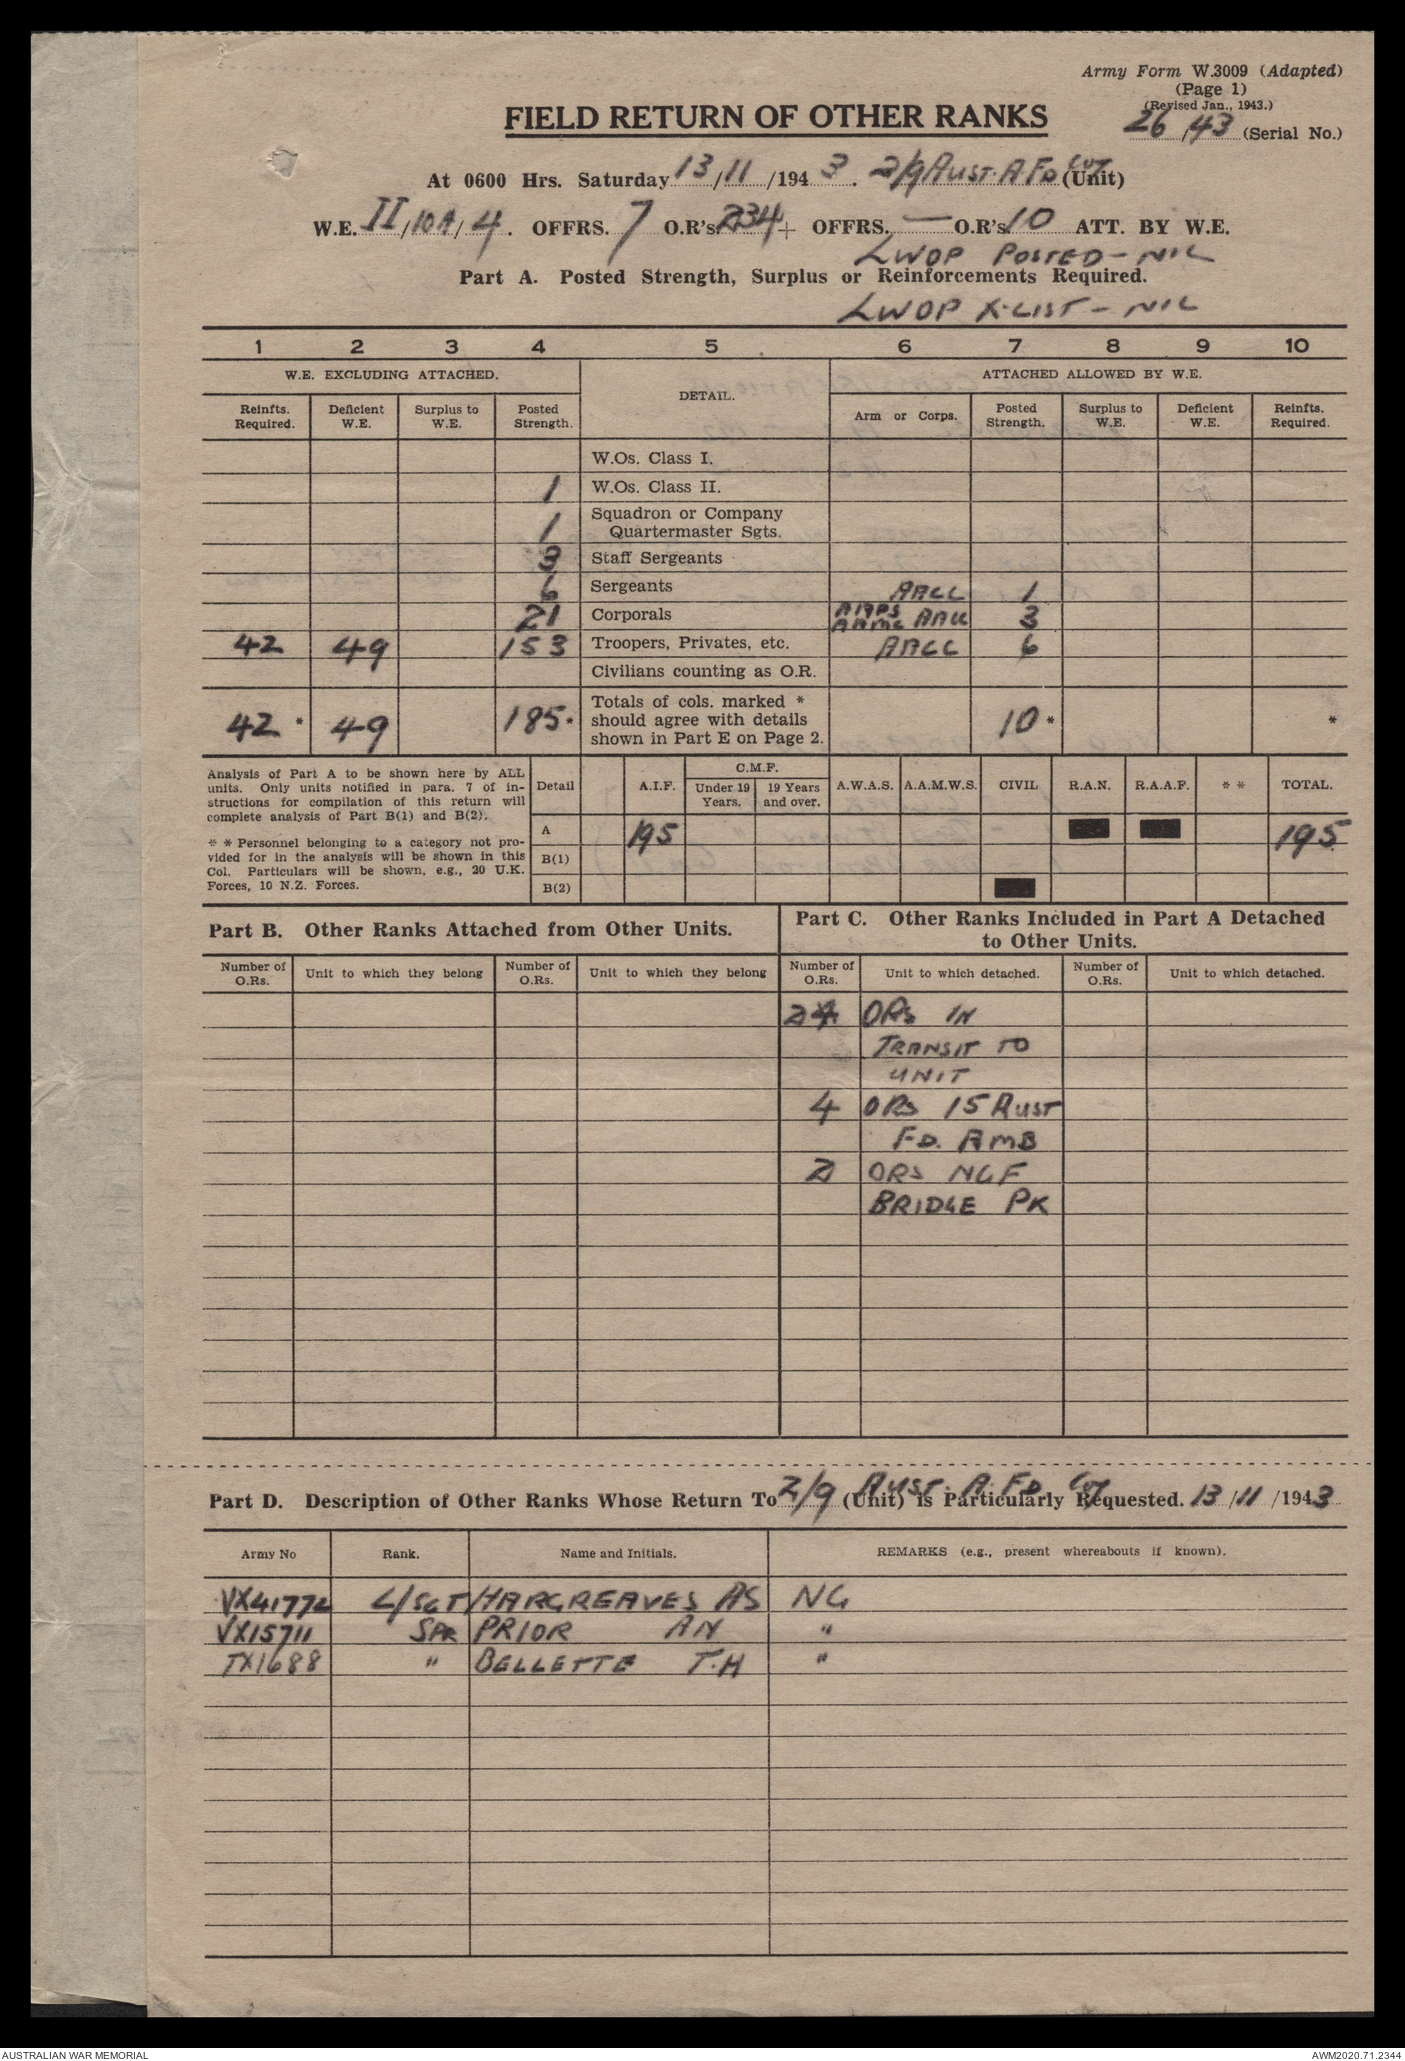 Army Form W.3009 (Adapted)
(Page 1)
(Revised Jan., 1943.)
26/43 (Serial No.)
FIELD RETURN OF OTHER RANKS
At 0600 Hrs. Saturday 13/11/1943. 2/9 AUST. A FD Coy (Unit)
W.E. II/10A/4. OFFRS. 7 O.R's 234 + OFFRS. — O.R's 10 ATT. BY W.E.
LWOP POSTED - NIL
Part A. Posted Strength, Surplus or Reinforcements Required.
LWOP X-LIST - NIL
1 2 3 4 5 6 7 8 9 10
W.E. EXCLUDING ATTACHED. DETAIL. ATTACHED ALLOWED BY W.E.
Reinfts. Required. Deficient W.E. Surplus to W.E. Posted Strength. Arm or Corps. Posted Strength. Surplus to W.E. Deficient W.E. Reinfts. Required.
W.Os. Class I.
1 W.Os. Class II.
1 Squadron or Company Quartermaster Sgts.
3 Staff Sergeants
6 Sergeants AACC 1
21 Corporals AAMC AACC 3
42 49 153 Troopers, Privates, etc. AACC 6
Civilians counting as O.R.
42 * 49 185 * Totals of cols. marked * should agree with details shown in Part E on Page 2. 10 * *
Analysis of Part A to be shown here by ALL
units. Only units notified in para. 7 of in-
structions for compilation of this return will
complete analysis of Part B(1) and B(2).
* * Personnel belonging to a category not pro-
vided for in the analysis will be shown in this
Col. Particulars will be shown, e.g., 20 U.K.
Forces, 10 N.Z. Forces.
Detail A.I.F. C.M.F. Under 19 Years. 19 Years and over. A.W.A.S. A.A.M.W.S. CIVIL R.A.N. R.A.A.F. * * TOTAL.
A 195 195
B(1)
B(2)
Part B. Other Ranks Attached from Other Units.
Part C. Other Ranks Included in Part A Detached
to Other Units.
Number of O.Rs. Unit to which they belong Number of O.Rs. Unit to which they belong Number of O.Rs. Unit to which detached. Number of O.Rs. Unit to which detached.
24 ORs IN
TRANSIT TO
UNIT
4 ORs 15 AUST
FD. AMB
2 ORS NGF
BRIDGE PK
Part D. Description of Other Ranks Whose Return To 2/9 AUST. A. FD Coy (Unit) is Particularly Requested. 13/11/1943
Army No Rank. Name and Initials. REMARKS (e.g., present whereabouts if known).
VX41772 L/SGT HARGREAVES AS NG
VX15711 SPR PRIOR AN "
TX1688 " BELLETTE T.H "
AUSTRALIAN WAR MEMORIAL
AWM2020.71.2344